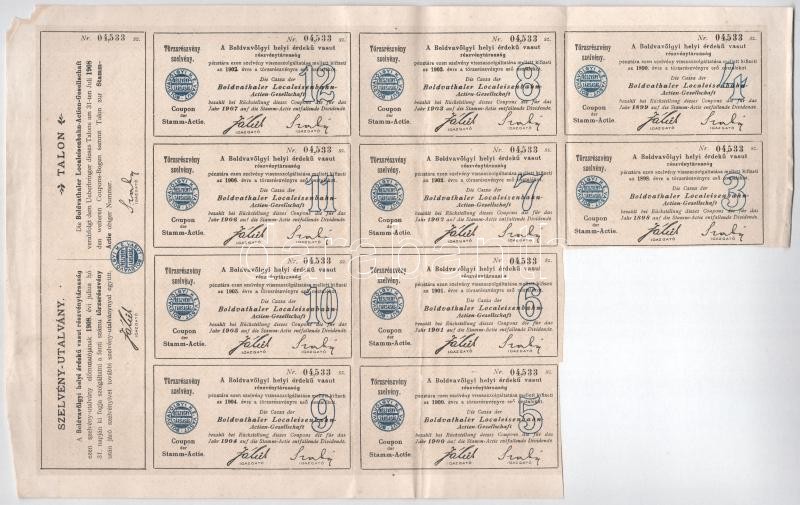 Nr. 04,533 sz.
TALON
Die Boldvathaler Localeisenbahn-Action-Gesellschaft
verabfolgt dem Ueberbringer dieses Talons am 31-ten Juli 1908
den weiteren Coupons-Bogen sammt Talon zur Stamm-
Actie obiger Nummer.
IGAZGATÓ
SZELVÉNY-UTALVÁNY.
A Boldvavölgyi helyi érdekű vasut részvénytársaság
ezen szelvény-utalvány előmutatójának 1908. évi julius hó
31. napján ki fogja szolgáltatni a fenti számu törzsrészvény
után járó szelvényivet további szelvény-utalvánnyal együtt.
IGAZGATÓ
Nr. 04,533 sz.
Törzsrészvény
szelvény.
Coupon
der
Stamm-Actie.
12
A Boldvavölgyi helyi érdekű vasut
részvénytársaság
pénztára ezen szelvény visszaszolgáltatása mellett kifizeti
Die Cassa der
Boldvathaler Localeisenbahn-
Action-Gesellschaft
bezahlt bei Rückstellung dieses Coupons die für das
Jahr 1907 auf die Stamm-Actie entfallende Dividende.
IGAZGATÓ IGAZGATÓ
Nr. 04,533 sz.
Törzsrészvény
szelvény.
Coupon
der
Stamm-Actie.
8
A Boldvavölgyi helyi érdekű vasut
részvénytársaság
pénztára ezen szelvény visszaszolgáltatása mellett kifizeti
az 1903. évre a törzsrészvényre eső osztalékot
Die Cassa der
Boldvathaler Localeisenbahn-
Action-Gesellschaft
bezahlt bei Rückstellung dieses Coupons die für das
Jahr 1903 auf die Stamm-Actie entfallende Dividende.
IGAZGATÓ IGAZGATÓ
Nr. 04,533 sz.
Törzsrészvény
szelvény.
Coupon
der
Stamm-Actie.
4
A Boldvavölgyi helyi érdekű vasut
részvénytársaság
pénztára ezen szelvény visszaszolgáltatása mellett kifizeti
az 1899. évre a törzsrészvényre eső osztalékot
Die Cassa der
Boldvathaler Localeisenbahn-
Action-Gesellschaft
bezahlt bei Rückstellung dieses Coupons die für das
Jahr 1899 auf die Stamm-Actie entfallende Dividende.
IGAZGATÓ IGAZGATÓ
Nr. 04,533 sz.
Törzsrészvény
szelvény.
Coupon
der
Stamm-Actie.
11
A Boldvavölgyi helyi érdekű vasut
részvénytársaság
pénztára ezen szelvény visszaszolgáltatása mellett kifizeti
az 1906. évre a törzsrészvényre eső osztalékot
Die Cassa der
Boldvathaler Localeisenbahn-
Action-Gesellschaft
bezahlt bei Rückstellung dieses Coupons die für das
Jahr 1906 auf die Stamm-Actie entfallende Dividende.
IGAZGATÓ IGAZGATÓ
Nr. 04,533 sz.
Törzsrészvény
szelvény.
Coupon
der
Stamm-Actie.
7
A Boldvavölgyi helyi érdekű vasut
részvénytársaság
pénztára ezen szelvény visszaszolgáltatása mellett kifizeti
Die Cassa der
Boldvathaler Localeisenbahn-
Action-Gesellschaft
bezahlt bei Rückstellung dieses Coupons die für das
Jahr 1902 auf die Stamm-Actie entfallende Dividende.
IGAZGATÓ IGAZGATÓ
Nr. 04,533 sz.
Törzsrészvény
szelvény.
Coupon
der
Stamm-Actie.
3
A Boldvavölgyi helyi érdekű vasut
részvénytársaság
pénztára ezen szelvény visszaszolgáltatása mellett kifizeti
az 1898. évre a törzsrészvényre eső osztalékot
Die Cassa der
Boldvathaler Localeisenbahn-
Action-Gesellschaft
bezahlt bei Rückstellung dieses Coupons die für das
Jahr 1898 auf die Stamm-Actie entfallende Dividende.
IGAZGATÓ IGAZGATÓ
Nr. 04,533 sz.
Törzsrészvény
szelvény.
Coupon
der
Stamm-Actie.
10
A Boldvavölgyi helyi érdekű vasut
részvénytársaság
pénztára ezen szelvény visszaszolgáltatása mellett kifizeti
az 1905. évre a törzsrészvényre eső osztalékot
Die Cassa der
Boldvathaler Localeisenbahn-
Action-Gesellschaft
bezahlt bei Rückstellung dieses Coupons die für das
auf die Stamm-Actie entfallende Dividende.
IGAZGATÓ IGAZGATÓ
Nr. 04,533 sz.
Törzsrészvény
szelvény.
Coupon
der
Stamm-Actie.
6
A Boldvavölgyi helyi érdekű vasut
részvénytársaság
pénztára ezen szelvény visszaszolgáltatása mellett kifizeti
az 1901. évre a törzsrészvényre eső osztalékot
Die Cassa der
Boldvathaler Localeisenbahn-
Action-Gesellschaft
bezahlt bei Rückstellung dieses Coupons die für das
Jahr 1901 auf die Stamm-Actie entfallende Dividende.
IGAZGATÓ IGAZGATÓ
Nr. 04,533 sz.
Törzsrészvény
szelvény.
Coupon
der
Stamm-Actie.
9
A Boldvavölgyi helyi érdekű vasut
részvénytársaság
pénztára ezen szelvény visszaszolgáltatása mellett kifizeti
az 1904. évre a törzsrészvényre eső osztalékot
Die Cassa der
Boldvathaler Localeisenbahn-
Action-Gesellschaft
bezahlt bei Rückstellung dieses Coupons die für das
Jahr 1904 auf die Stamm-Actie entfallende Dividende.
IGAZGATÓ IGAZGATÓ
Nr. 04,533 sz.
Törzsrészvény
szelvény.
Coupon
der
Stamm-Actie.
5
A Boldvavölgyi helyi érdekű vasut
részvénytársaság
pénztára ezen szelvény visszaszolgáltatása mellett kifizeti
az 1900. évre a törzsrészvényre eső osztalékot
Die Cassa der
Boldvathaler Localeisenbahn-
Action-Gesellschaft
bezahlt bei Rückstellung dieses Coupons die für das
Jahr 1900 auf die Stamm-Actie entfallende Dividende.
IGAZGATÓ IGAZGATÓ